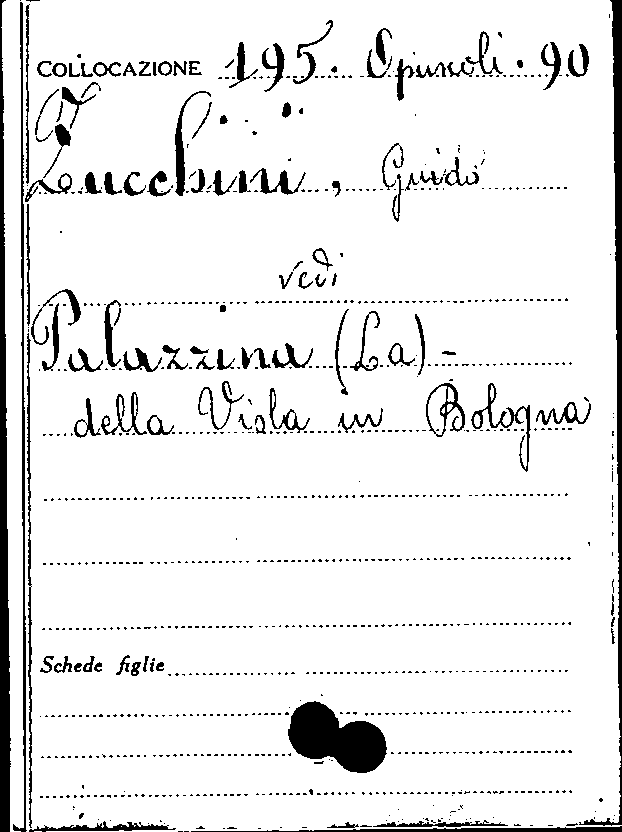 COLLOCAZIONE 195. Opuscoli. 90
Zucchini, Guido
vedi
Palazzina (La) -
della Viola in Bologna
Schede figlie